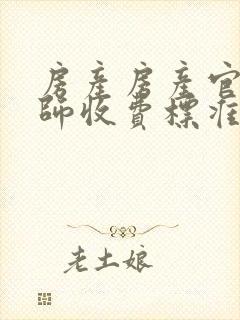 房產房產官
師收費標准
老土娘